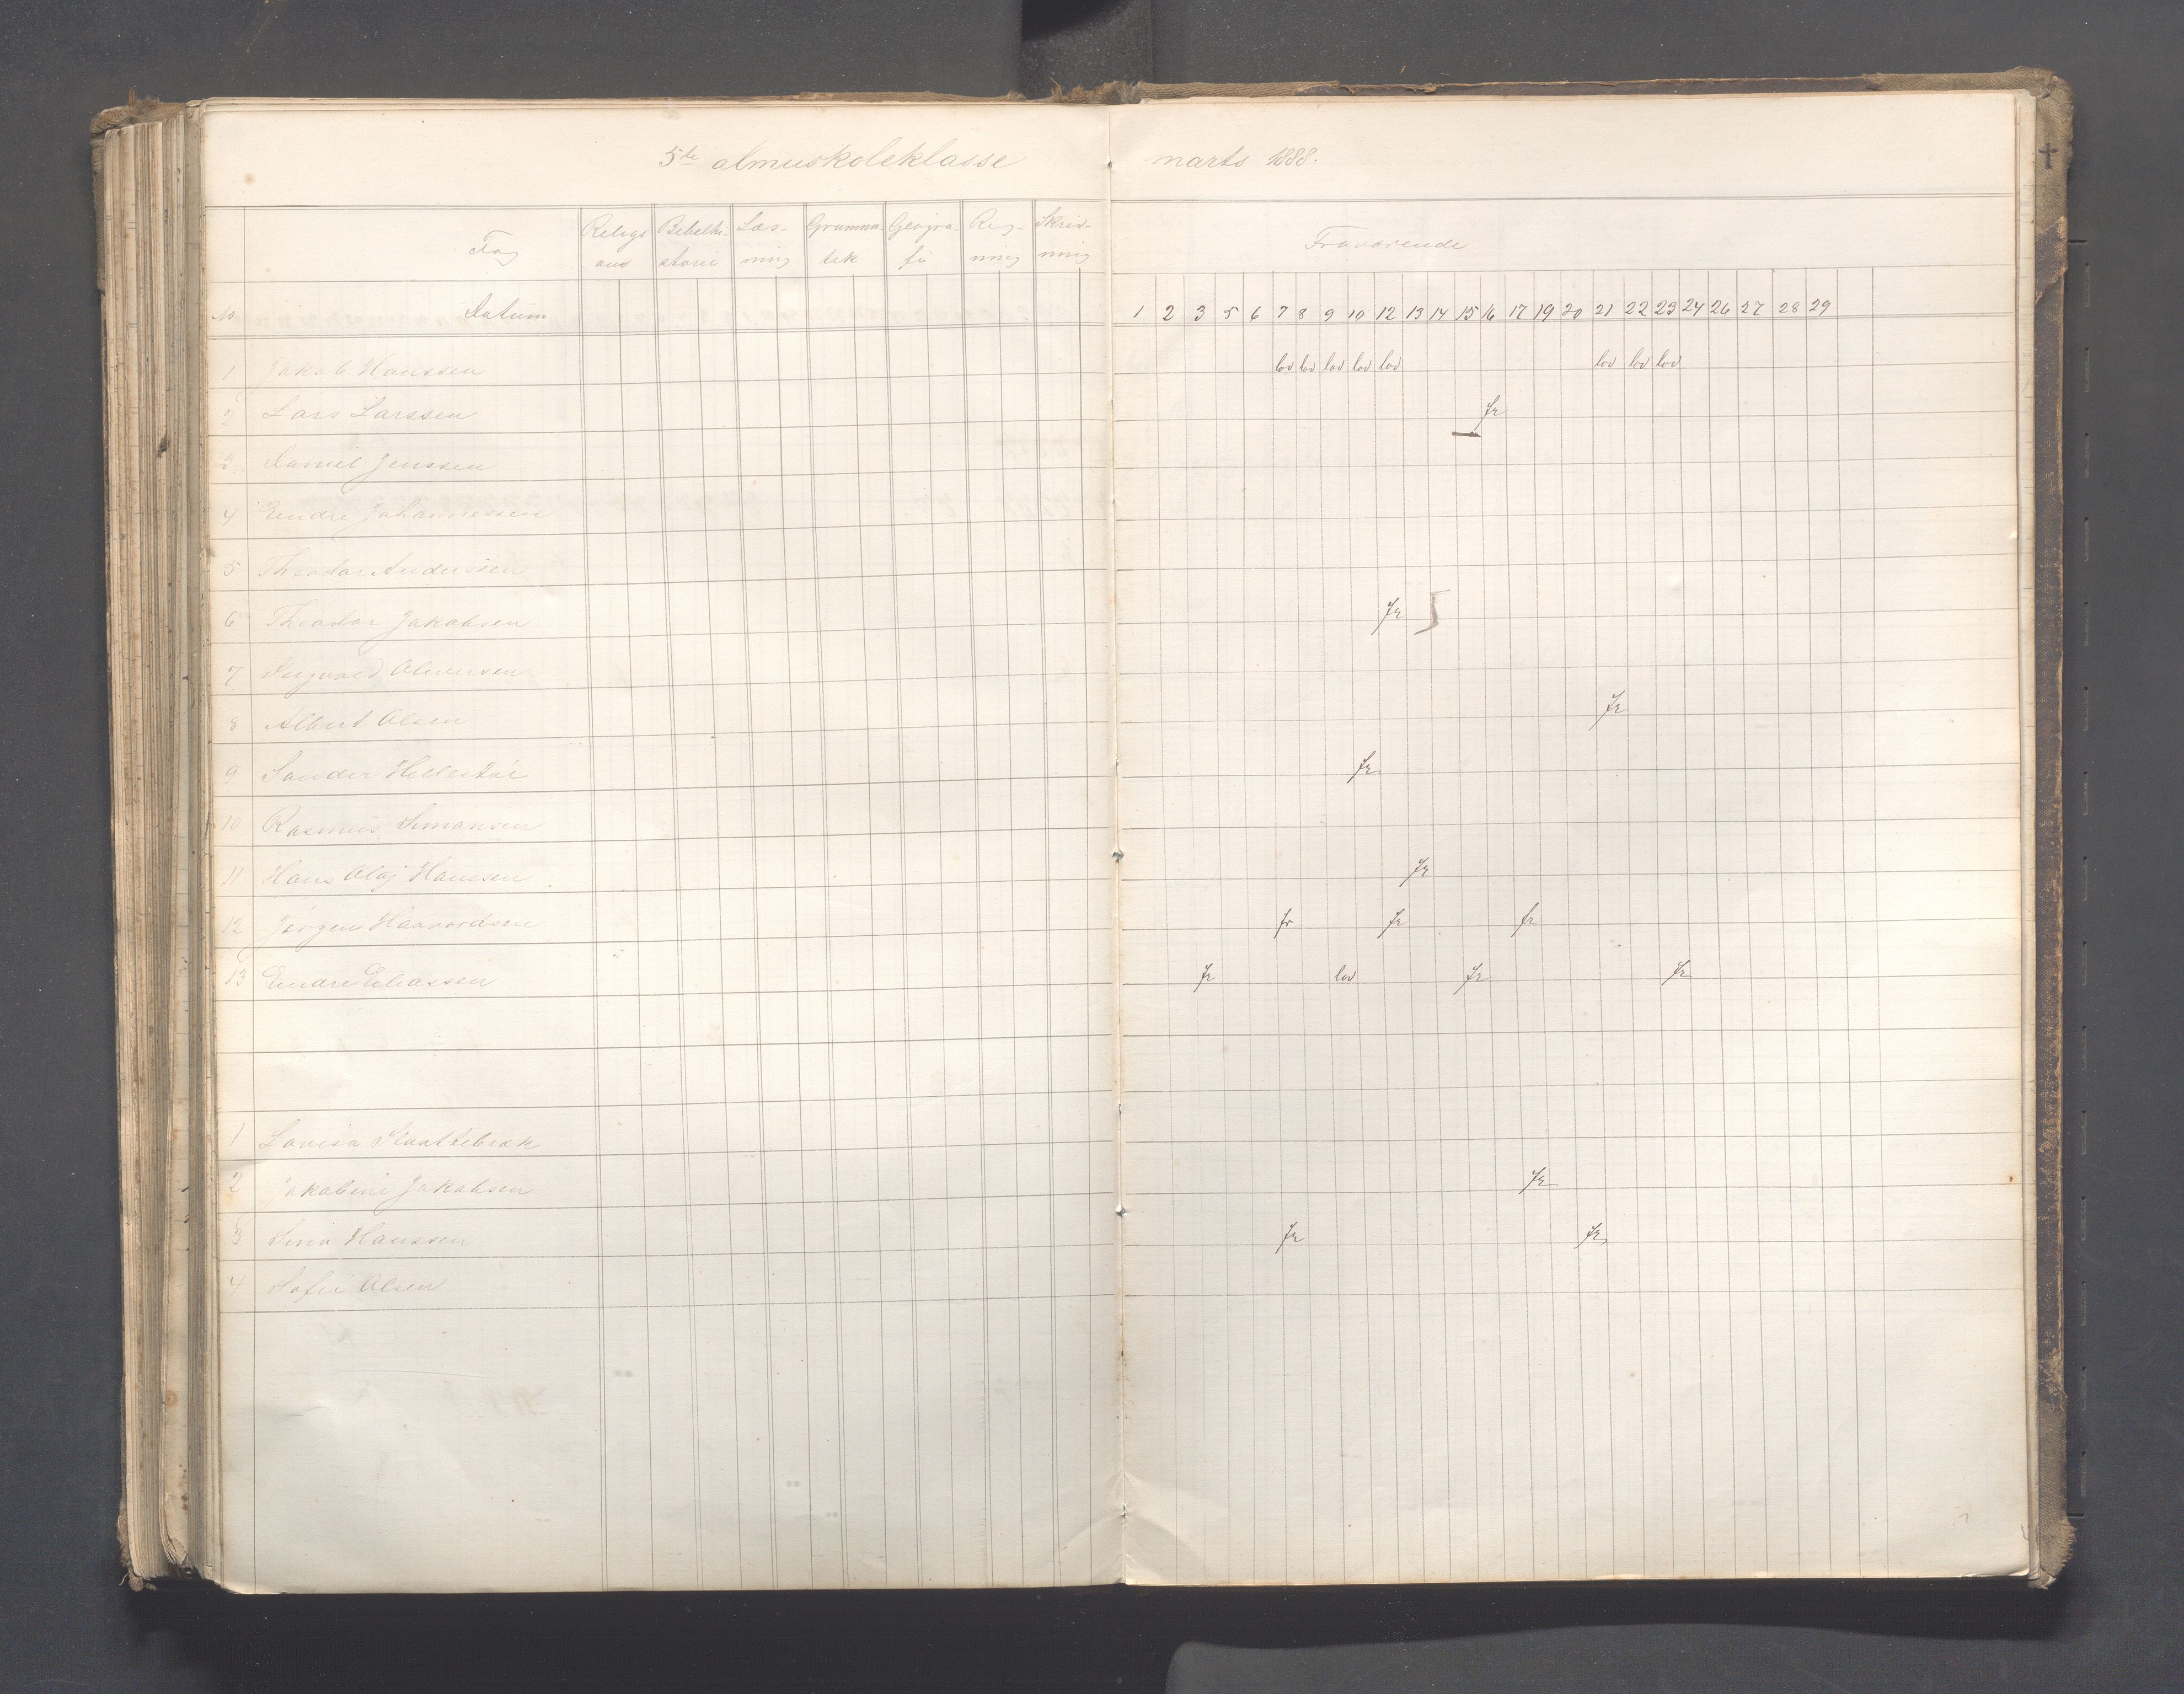 5te almuskoleklasse marts 1888.
Fag Religi ons Bibelhi- storie Læs- ning Gramma- tik Geogra- fi Reg- ning Skriv- ning Fraværende
No Datum 1 2 3 5 6 7 8 9 10 12 13 14 15 16 17 19 20 21 22 23 24 26 27 28 29
1 Jakob Hanssen lov lov lov lov lov lov lov lov
2 Lars Larssen fr
3 Daniel Jenssen
4 Endre Johannessen
5 Theodor Anderssen
6 Theodor Jakobsen fr
7 Ingvald Oliversen
8 Albert Olsen fr
9 Sander fr
10 Rasmus Simonsen
11 Hans Olaf Hanssen fr
12 Jørgen Haavardsen fr fr fr
13 Endre Eliassen fr lov fr fr
1 Lovisa Slaattebræk
2 Jakobine Jakobsen fr
3 Sina Hanssen fr fr
4 Sofie Olsen